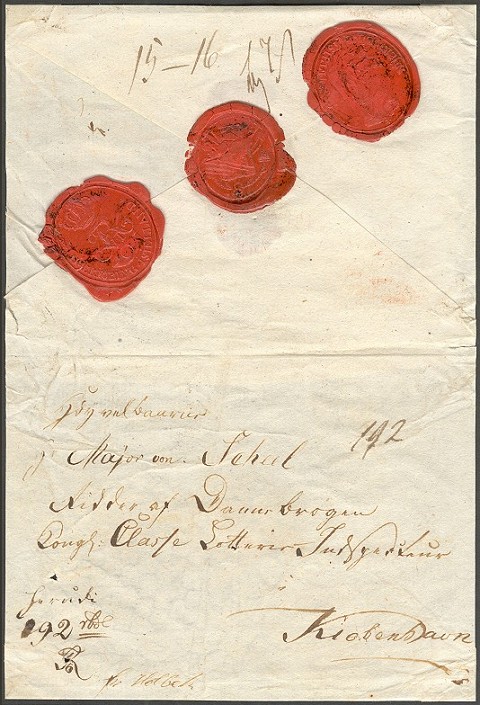 15-16
Høyvelbaarne
192
Major von Scheel
Ridder af Dannebrogen
Kongl: Classe Lotterie Indspecteur
herudi
192 rbd
Kiøbenhavn
fr Holbek